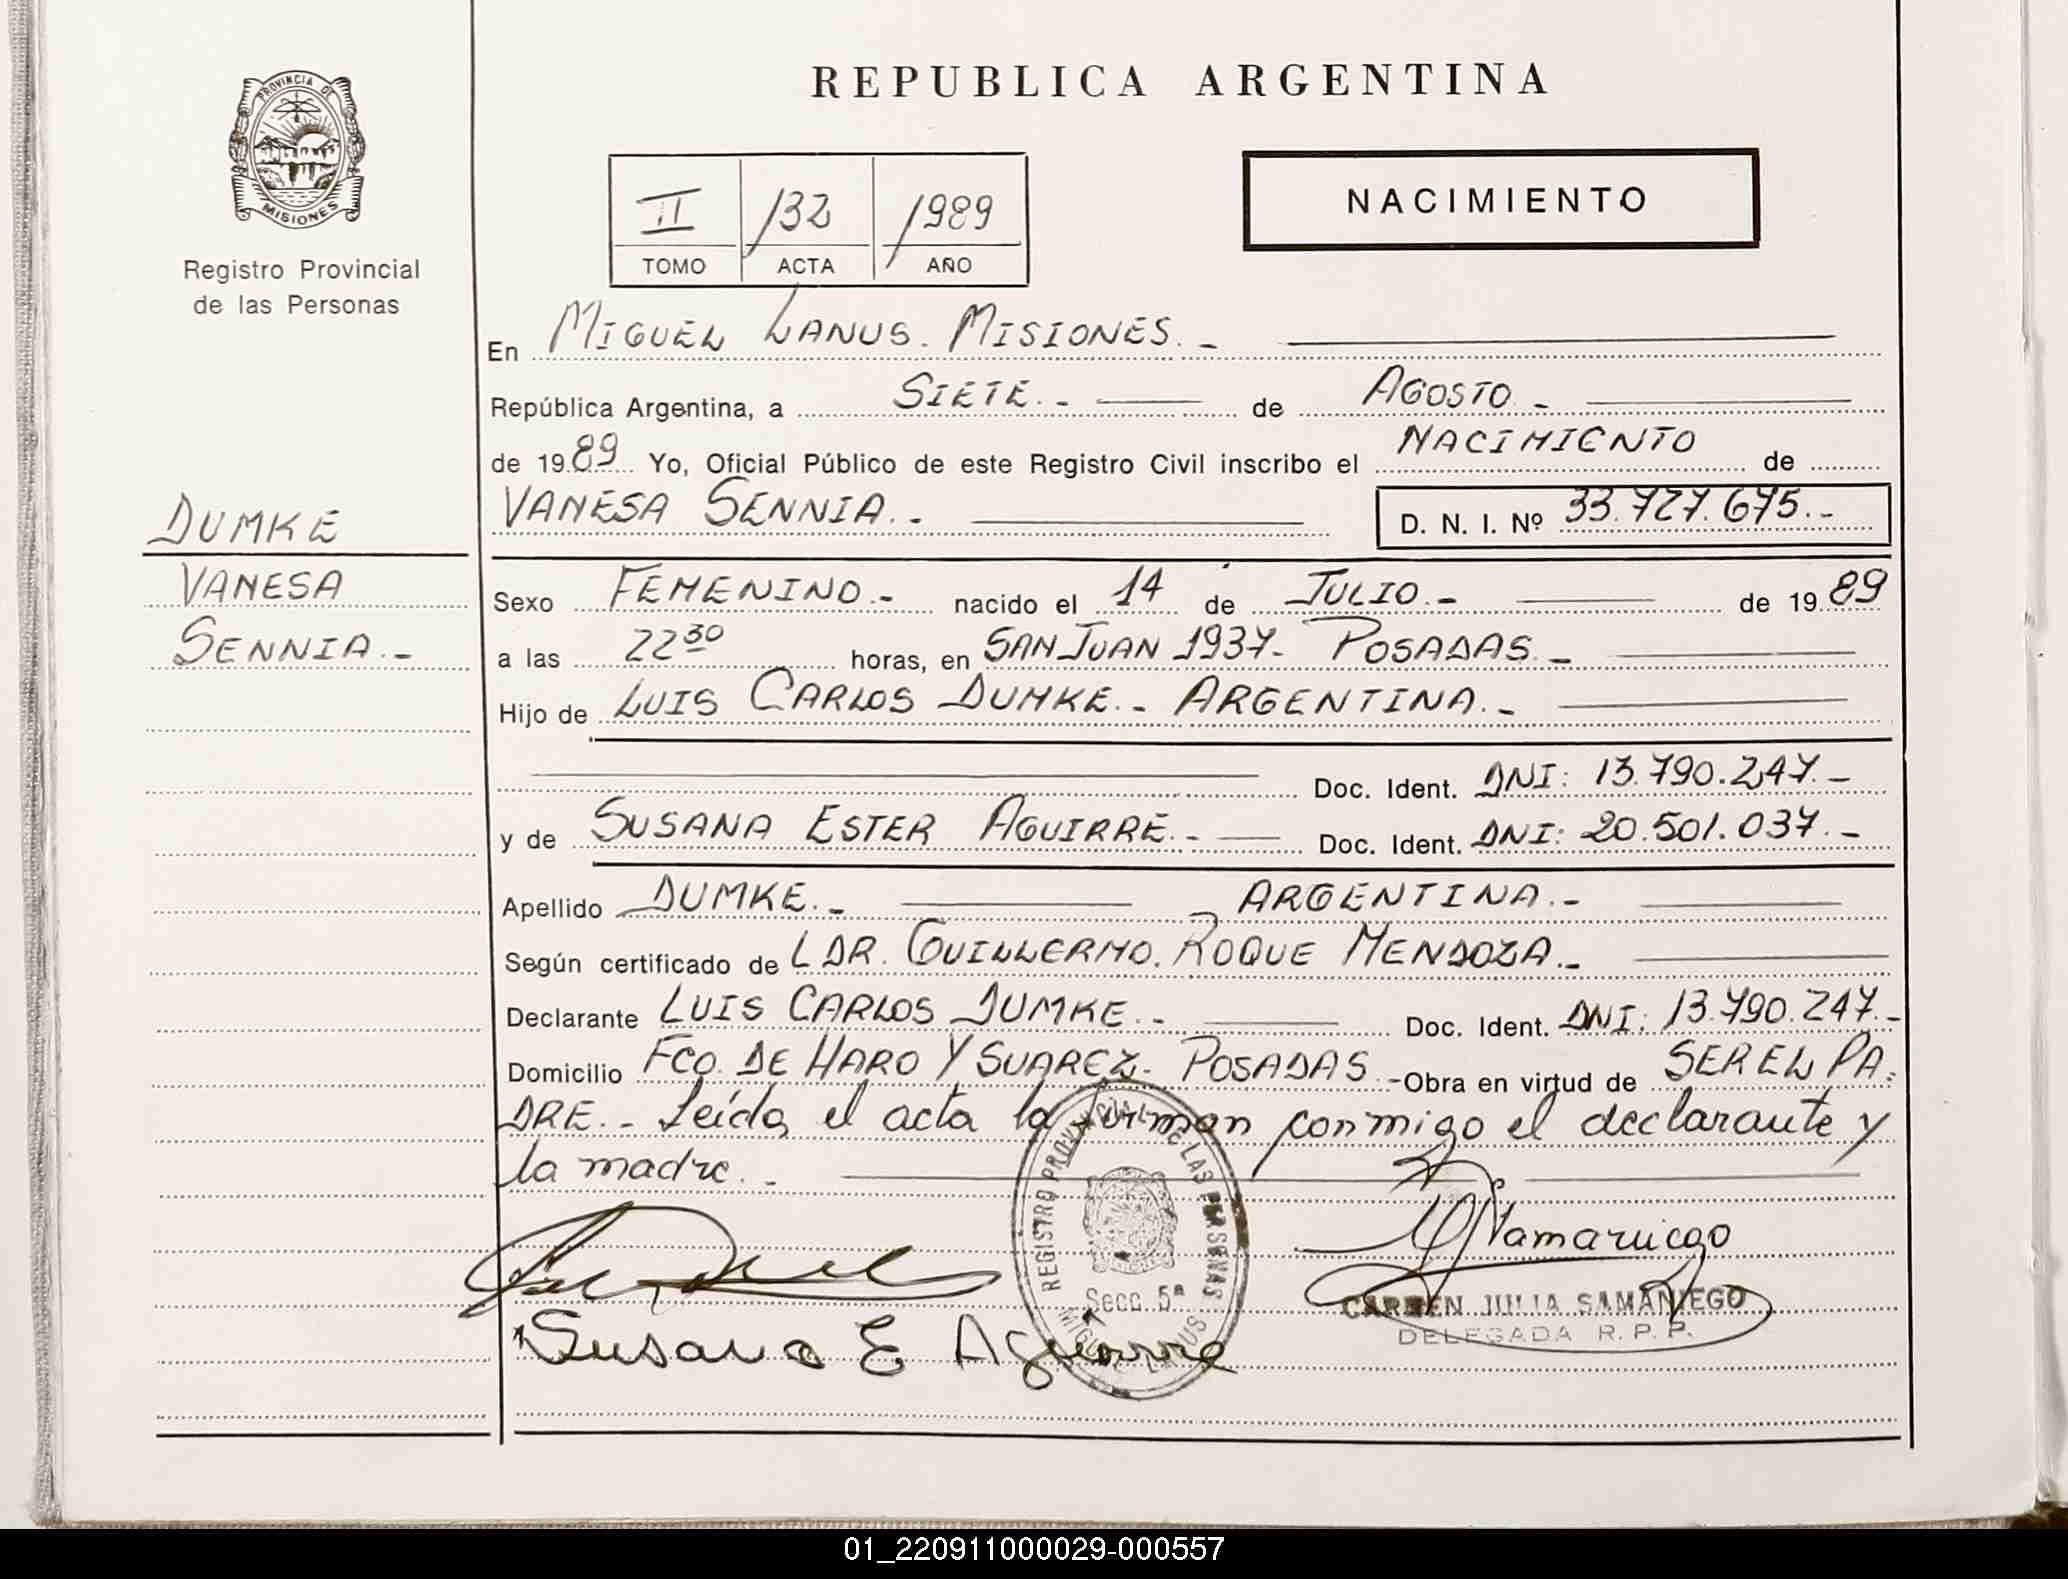 REPUBLICA ARGENTINA
PROVINCIA DE
MISIONES
Registro Provincial
de las Personas
NACIMIENTO
II 132 1989
TOMO ACTA AÑO
En MIGUEL LANUS. MISIONES.-
República Argentina, a SIETE.- de AGOSTO.-
de 1989 Yo, Oficial Público de este Registro Civil inscribo el NACIMIENTO de
VANESA SENNIA.- D. N. I. Nº 33.727.675.-
DUMKE
VANESA
SENNIA.-
Sexo FEMENINO.- nacido el 14 de JULIO.- de 1989
a las 22 30 horas, en SAN JUAN 1937- POSADAS.-
Hijo de LUIS CARLOS DUMKE.- ARGENTINA.-
Doc. Ident. DNI: 13.790.247.-
y de SUSANA ESTER AGUIRRE.- Doc. Ident. DNI: 20.501.037.-
Apellido DUMKE.- ARGENTINA.-
Según certificado de L DR. GUILLERMO. ROQUE MENDOZA.-
Declarante LUIS CARLOS DUMKE.- Doc. Ident. DNI: 13.790.247.-
Domicilio FCO. DE HARO Y SUAREZ- POSADAS.- Obra en virtud de SER EL PA-
DRE.- Leída el acta la firman conmigo el declarante y
la madre.-
REGISTRO PROVINCIAL DE LAS PERSONAS
Secc. 5ª
MIGUEL LANUS
Susana E Aguirre
CARMEN JULIA SAMANIEGO
DELEGADA R. P. P.
01_220911000029-000557